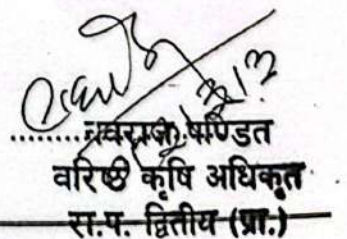 नवराज पण्डित
वरिष्ठ कृषि अधिकृत
रा.प. द्वितीय (प्रा.)